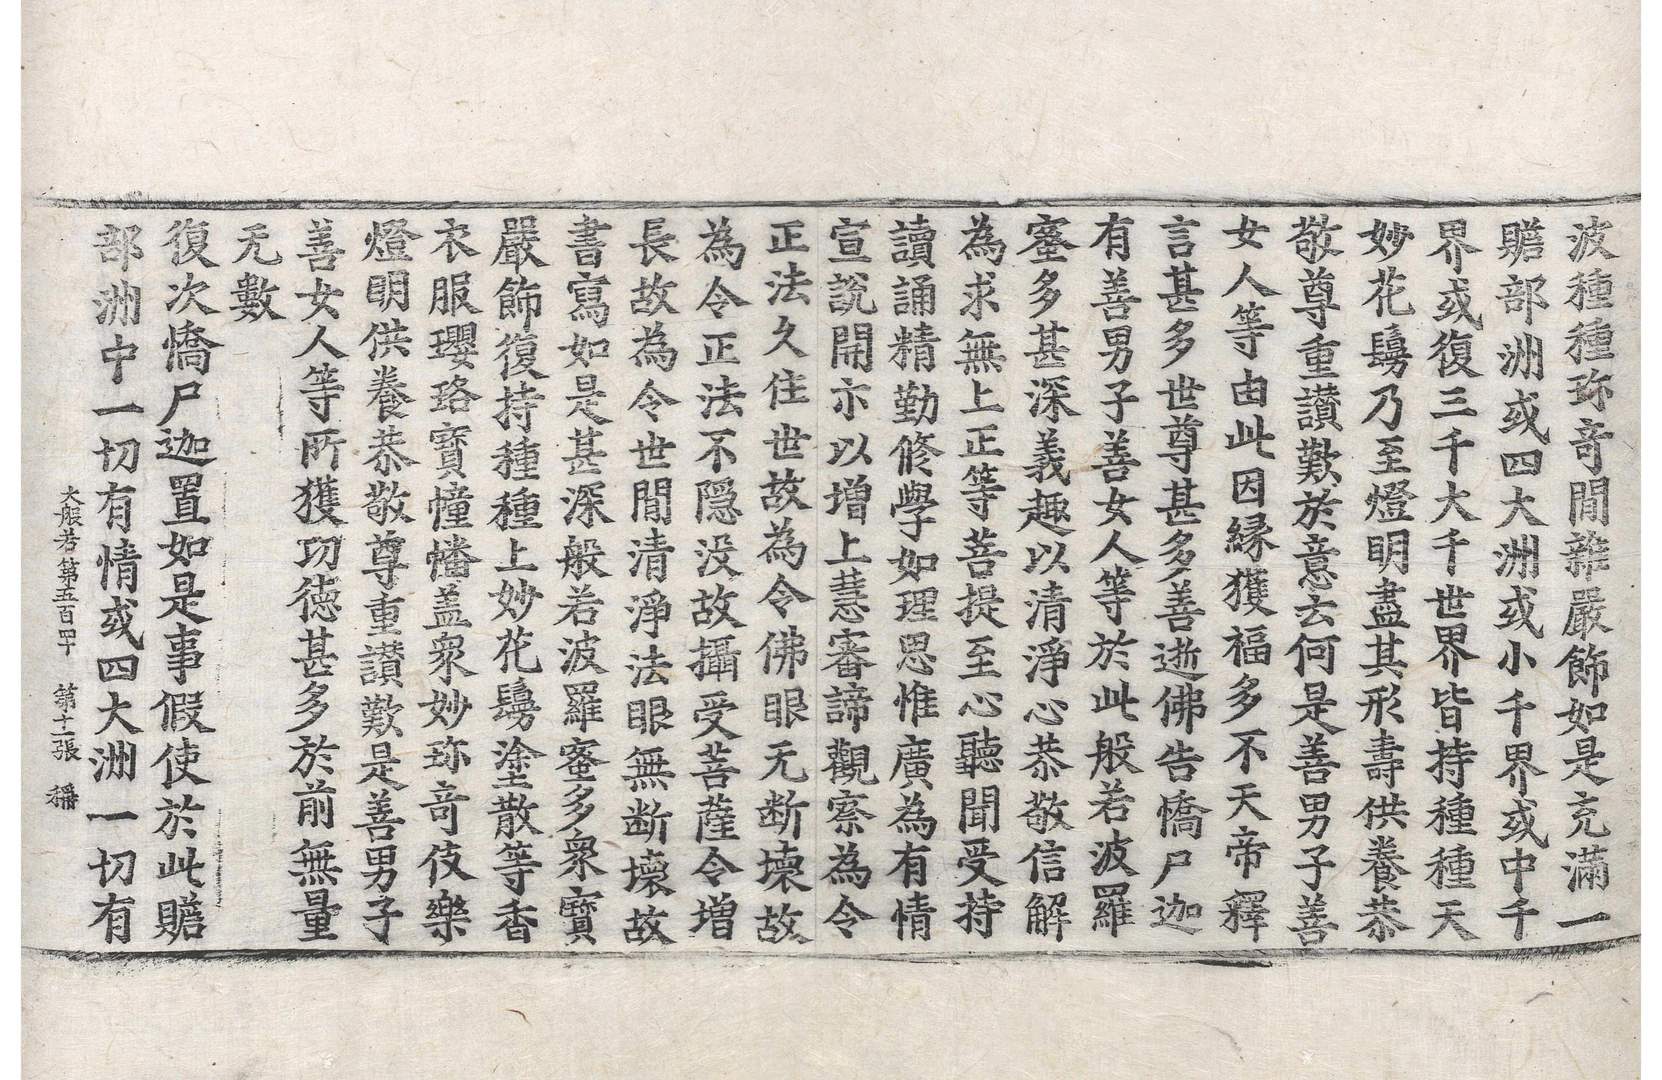 波種種珎竒閒雜嚴飾如是充滿一
贍部洲或四大洲或小千界或中千
界或復三千大千世界皆持種種天
妙花鬘乃至燈明盡其形壽供養恭
敬尊重讃歎於意云何是善男子善
女人等由此因縁獲福多不天帝釋
言甚多世尊甚多善逝佛告憍尸迦
有善男子善女人等於此般若波羅
蜜多甚深義趣以清淨心恭敬信解
為求無上正等菩提至心聽聞受持
讀誦精勤修學如理思惟廣為有情
宣說開示以增上慧審諦觀察為令
正法久住世故為令佛眼无断壞故
為令正法不隱没故攝受菩薩令增
長故為令世閒清淨法眼無断壞故
書寫如是甚深般若波羅蜜多衆寶
嚴飾復持種種上妙花鬘塗散等香
衣服瓔珞寶幢幡盖衆妙珎竒伎樂
燈明供養恭敬尊重讃歎是善男子
善女人等所獲功德甚多於前無量
无數
復次憍尸迦置如是事假使於此贍
部洲中一切有情或四大洲一切有
大般若第五百四十 第十二張 稱